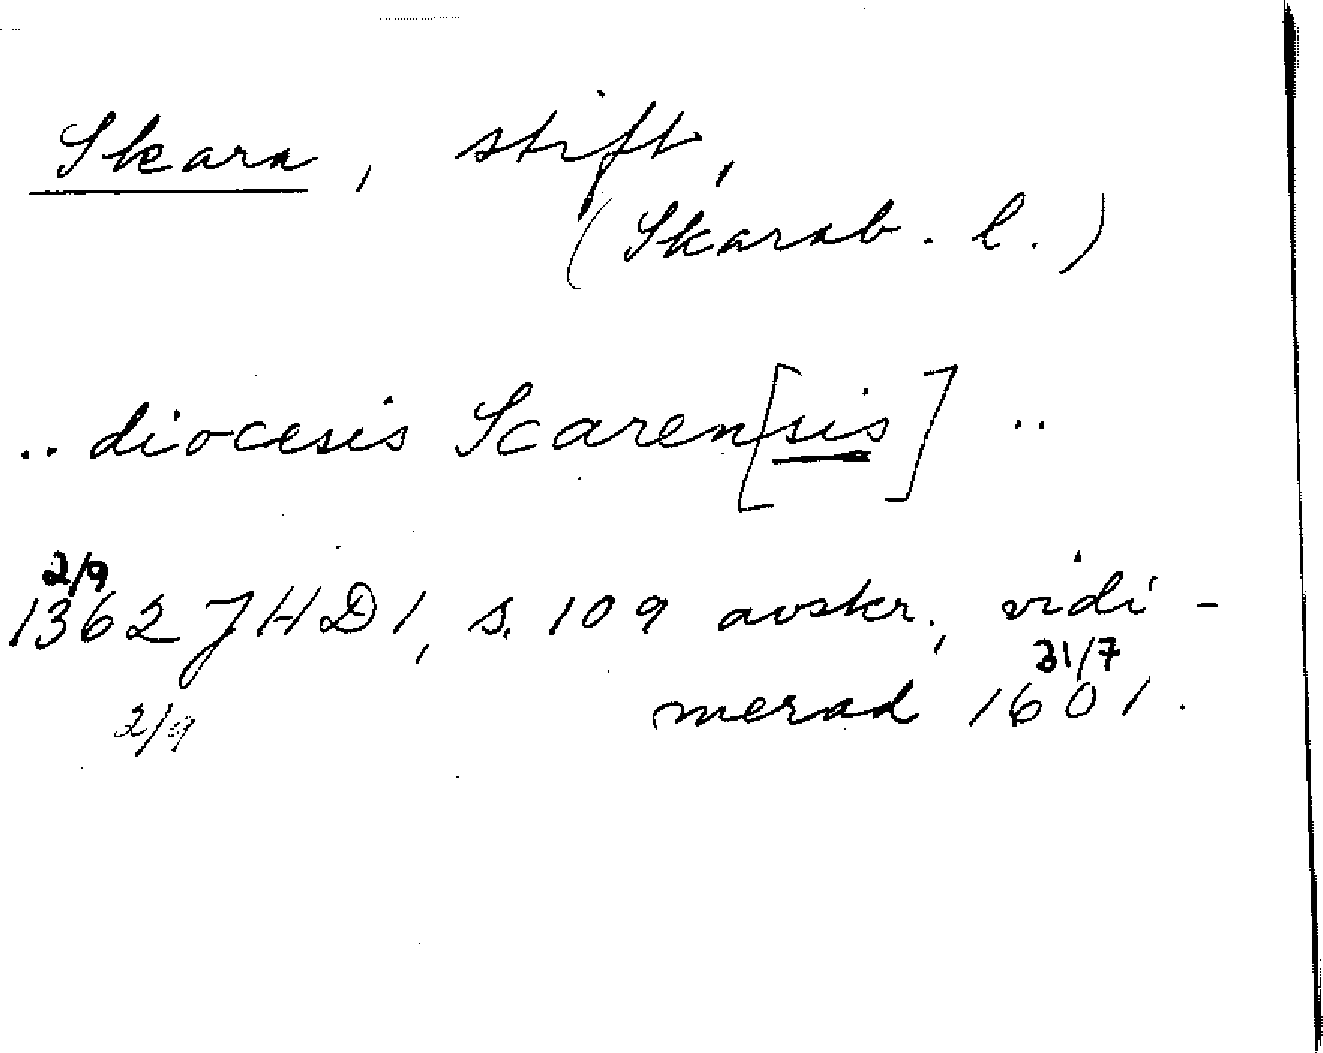 Skara, stift,
(Skarab. l.)
.. diocesis Scaren[sis] ..
2/9
1362 JHD 1, s. 109 avskr., vidi-
31/7
merad 1601.
2/9